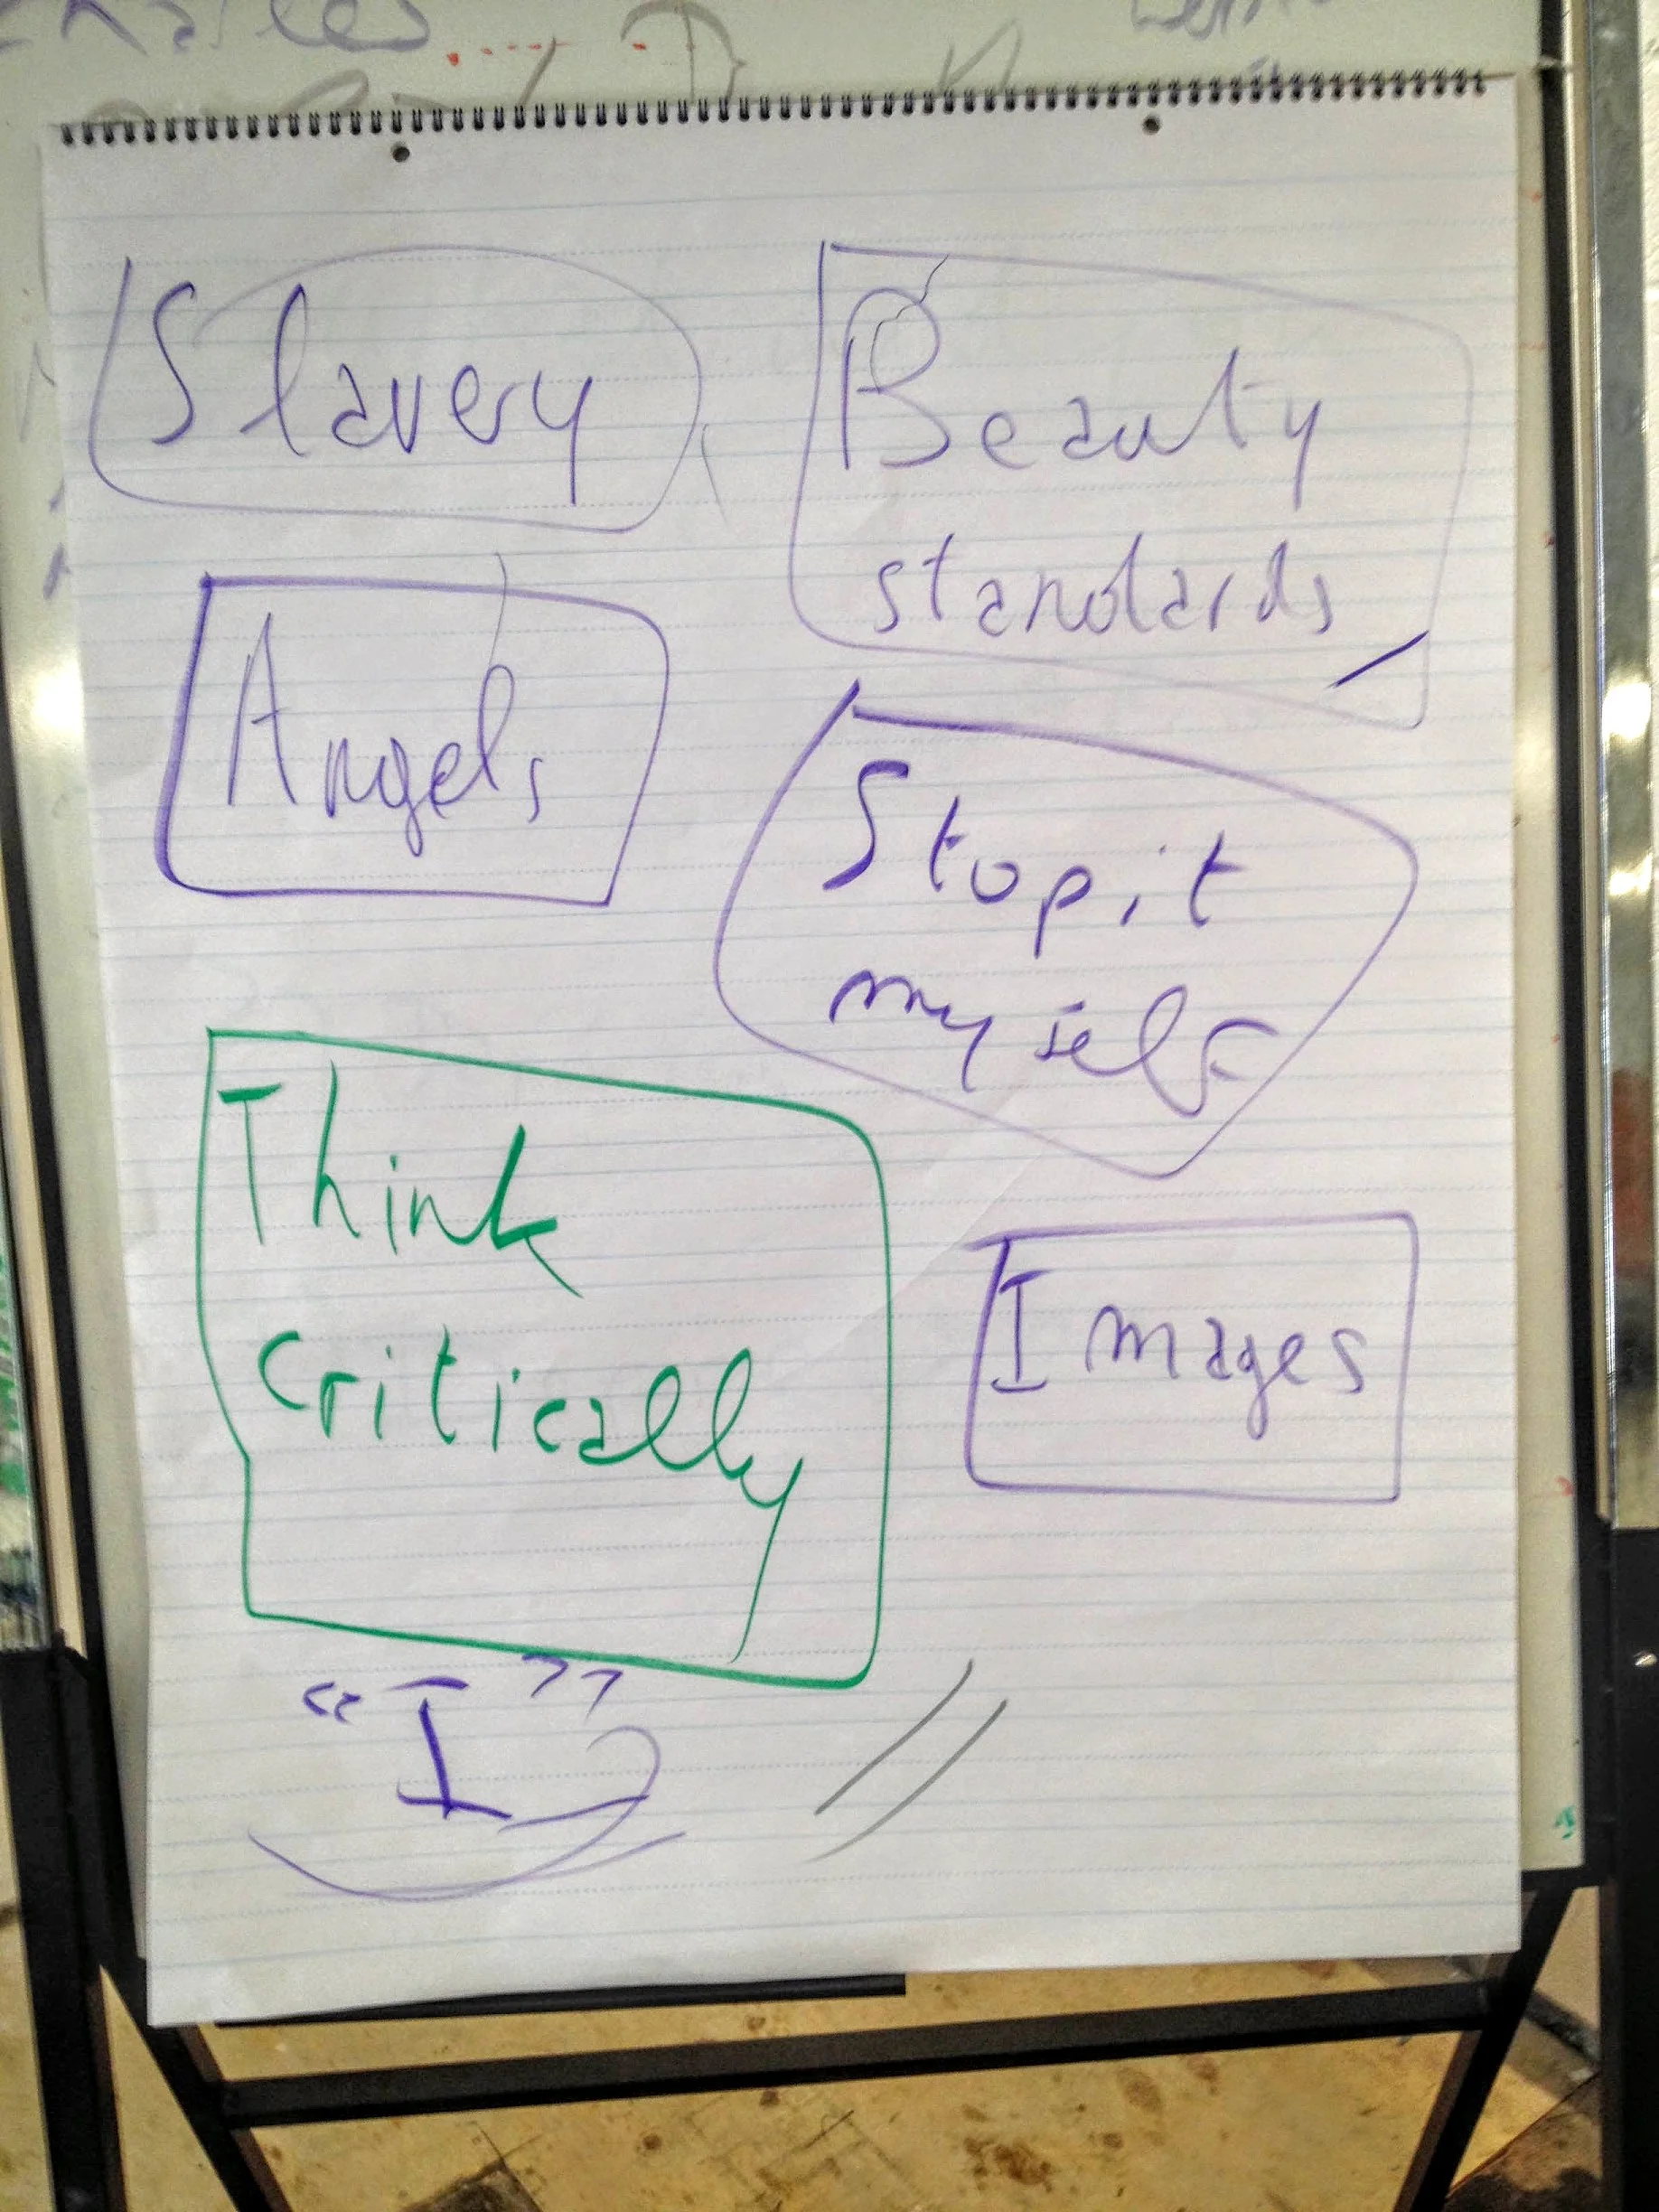 Slavery
Beauty
standards
Angels
Stop it
my self
Think
Critically
Images
"I"